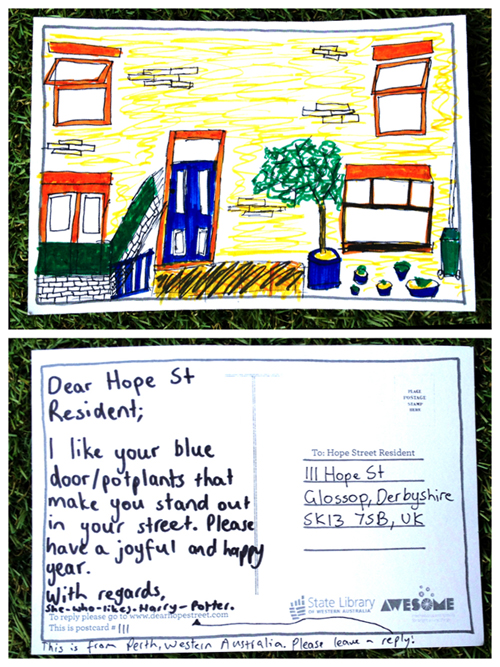 Dear Hope St
Resident;
I like your blue
door/potplants that
make you stand out
in your street. Please
have a joyful and happy
year.
With regards,
She-who-likes-Harry-Potter.
To reply please go to www.dearhopestreet.com
This is postcard # 111
This is from Perth, Western Australia. Please leave a reply!
PLACE
POSTAGE
STAMP
HERE
To: Hope Street Resident
111 Hope St
Glossop, Derbyshire
SK13 7SB, UK
State Library
OF WESTERN AUSTRALIA
AWESOME